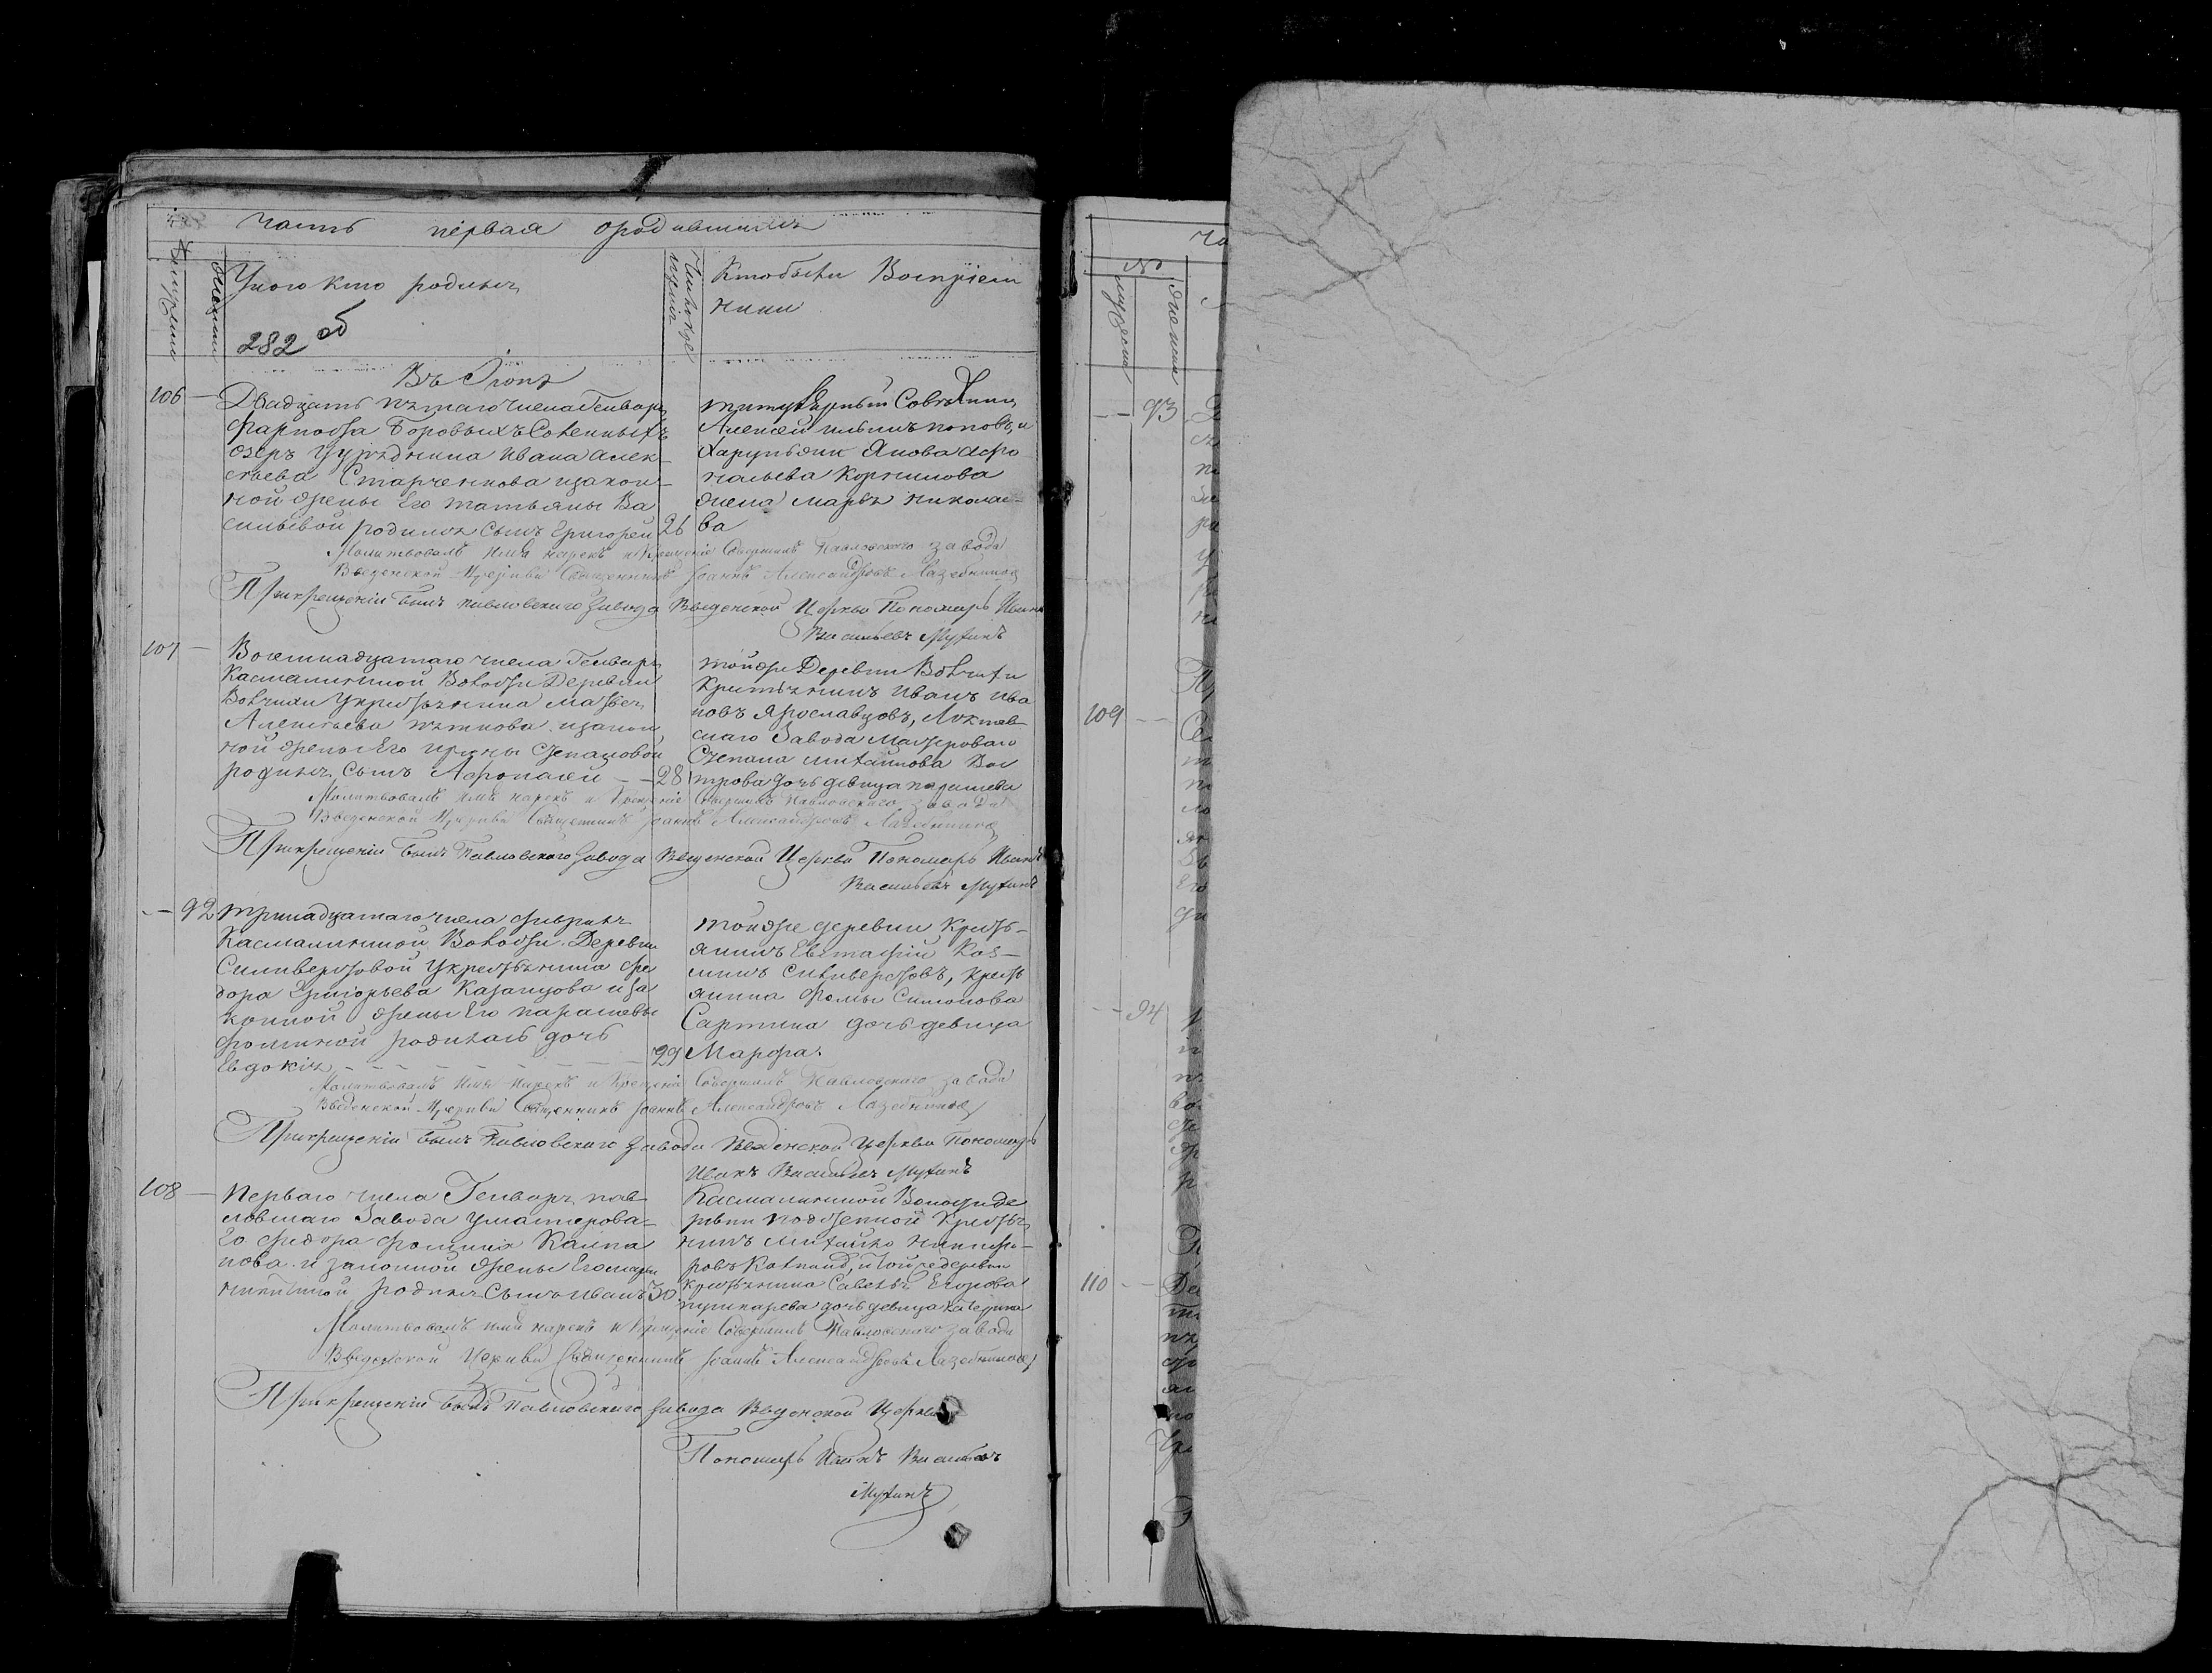 Часть первая о родившихся
Мужеска
Женска
У кого кто родился
Число крещения
Кто были Восприем
ники
282 об
Въ Іюнѣ
106 — Двадцать пятаго числа Генваря
форпоста Боровыхъ Соленныхъ
озеръ Урядника Ивана Алек-
сѣева Старченкова и закон-
ной жены Его Татьяны Ва
сильевой родился сынъ Григорей 26
титулярный Совѣтникъ
Алексей Ильинъ поповъ, и
Якова Афо
насьева Корнилова
жена Марья Николае-
ва
Молитвовалъ имя нарекъ и Крещеніе Совершилъ Павловскаго завода
Введенской Церкви Священникъ Іоаннъ Александровъ Лазебников
При крещеніи былъ павловскаго Завода Введенской Церкви Пономарь Иванъ
Васильевъ Мухинъ
107 — Восемнадцатаго числа Генваря
Касмалинской Волости Деревни
Волчихи У крестьянина Матвея
Алексѣева пяткова и закон
ной жены Его Ирины Степановой
родился сынъ Афонасей — — 28
той же Деревни Волчихи
Крестьянинъ Иванъ Ива
новъ Ярославцовъ, Локтев-
скаго Завода Мастероваго
Степана Михайлова Вос
трова дочь девица парасковья
Молитвовалъ имя нарекъ и Крещеніе Совершилъ Павловскаго завода
Введенской Церкви Священникъ Іоаннъ Александровъ Лазебников
При крещеніи былъ Павловскаго Завода Введенской Церкви Пономарь Иванъ
Васильевъ Мухинъ
— 92 тринадцатаго числа февраля
Касмалинской Волости Деревни
Селиверстовой У крестьянина Фе
дора Григорьева Казанцова и за
конной жены Его парасковьи
Фоминой родилась дочь
Евдокія — — — — — 29
той же деревни Кресть-
янинъ Евстафій Коз-
минъ Селиверстовъ, крест
янина Фомы Симонова
Сартина дочь девица
Марфа.
Молитвовалъ Имя нарекъ и Крещеніе Совершилъ Павловскаго завода
Введенской Церкви Священникъ Іоаннъ Александровъ Лазебников
При крещеніи былъ Павловскаго Завода Введенской Церкви Пономарь
Иванъ Васильевъ Мухинъ
108 — перваго числа Генваря пав
ловскаго Завода У мастерова-
го Федора Фомина Калпа
кова и законной жены Его Марьи
Никитиной родился сынъ Иванъ 30
Касмалинской Волости де
ревни подстепной Крестья
нинъ Михайло Никифо-
ровъ и той же деревни
крестьянина Савелья Егорова
пушкарева дочь девица Катерина
Молитвовалъ имя нарекъ и Крещеніе Совершилъ Павловскаго завода
Введенской Церкви Священникъ Іоаннъ Александровъ Лазебников
При крещеніи былъ Павловскаго Завода Введенской Церкви
Пономарь Иванъ Васильевъ
Мухинъ
№
мужеска
женска
— 93
109 —
— 94
110 —